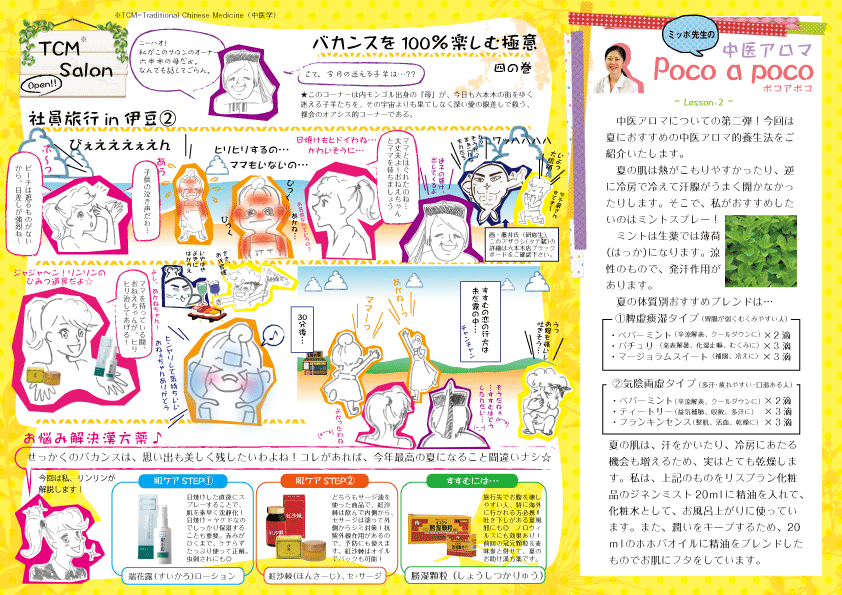 ※TCM=Traditional Chinese Medicine（中医学）
TCM※
Salon
Open!!
ニーハオ！
私がこのサロンのオーナー
六本木の母だよ。
なんでも話してごらん。
バカンスを100%楽しむ極意
四の巻
さて、今月の迷える子羊は…??
★このコーナーは内モンゴル出身の『母』が、今日も六本木の街を歩く
迷える子羊たちを、その宇宙よりも果てしなく深い愛の眼差しで救う、
都会のオアシス的コーナーである。
社員旅行 in 伊豆②
びぇえええぇえん
ビーチは遮るものがない
から、日差しが強烈ね！
子供の泣き声だわ…
あう
ヒリヒリするの…
ママもいないの…
ひっく
ひっく
あかね…
日焼けもヒドイわね…
かわいそうに…
ママとはぐれたのね…
大丈夫よ！おねえちゃん
とママを待ちましょう！
画・藤井氏（研修生）
このアザラシ（タテ髪）の
詳細は六本木店ブラック
ボードをご確認下さい。
ジャジャ～ン！リンリンの
ひみつ道具だよ☆
ママを待っている間、
おねえちゃんが、ヒリ
ヒリ治してあげる！
ヒンヤリして気持ちいい
おねえちゃんありがとう
30分後…
ママーっ
あかねーっ
よかったわね
すすむの恋の行方は
未だ霧の中…
チャンチャン
お腹も痛いし
吐きそう…
お悩み解決漢方薬♪
せっかくのバカンスは、思い出も美しく残したいわよね！コレがあれば、今年最高の夏になること間違いナシ☆
今回は私、リンリンが
解説します！
肌ケア STEP①
日焼けした直後にス
プレーすることで、
肌を素早く沈静化！
日焼け＝ヤケドなの
でしっかり保湿する
ことも重要。赤みが
ひくまで、ケチらず
たっぷり使って正解。
虫刺されにも◎
瑞花露（すいかろ）ローション
肌ケア STEP②
どちらもサージ油を
使った商品で、紅沙
棘は飲んで内側から、
セサージは塗って外
側からシミ対策！抗
紫外線作用があるの
で、予防にも使えま
す。紅沙棘はオイル
でパックも可能！
紅沙棘（ほんさーじ）、セ・サージ
すすむには…
旅行先でお腹を壊し
やすい人、特に海外
に行かれる方必携！
吐き下しがある夏風
邪にも◎　ノロウィ
ルスにも効果あり！
前回の冠元顆粒＆麦
味参と併せて、夏の
お助け漢方薬です。
勝湿顆粒（しょうしつかりゅう）
ミッポ先生の
中医アロマ
Poco a poco
ポコアポコ
- Lesson.2 -
中医アロマについての第二弾！今回は
夏におすすめの中医アロマ的養生法をご
紹介いたします。
夏の肌は熱がこもりやすかったり、逆
に冷房で冷えて汗腺がうまく開かなかっ
たりします。そこで、私がおすすめした
いのはミントスプレー！
ミントは生薬では薄荷
（はっか）になります。涼
性のもので、発汗作用が
あります。
夏の体質別おすすめブレンドは…
①脾虚痰湿タイプ（胃腸が弱くむくみやすい人）
・ペパーミント（辛涼解表、クールダウンに）×２滴
・パチュリ（発表解暑、化湿止嘔、むくみに）×３滴
・マージョラムスイート（補陽、冷えに）×３滴
②気陰両虚タイプ（多汗・疲れやすい・口渇ある人）
・ペパーミント（辛涼解表、クールダウンに）×２滴
・ティートリー（益気補肺、収斂、多汗に）×３滴
・フランキンセンス（整肌、活血、乾燥に）×３滴
夏の肌は、汗をかいたり、冷房にあたる
機会も増えるため、実はとても乾燥しま
す。私は、上記のものをリスブラン化粧
品のジネンミスト 20mlに精油を入れて、
化粧水として、お風呂上がりに使ってい
ます。また、潤いをキープするため、20
mlのホホバオイルに精油をブレンドした
ものでお肌にフタをしています。